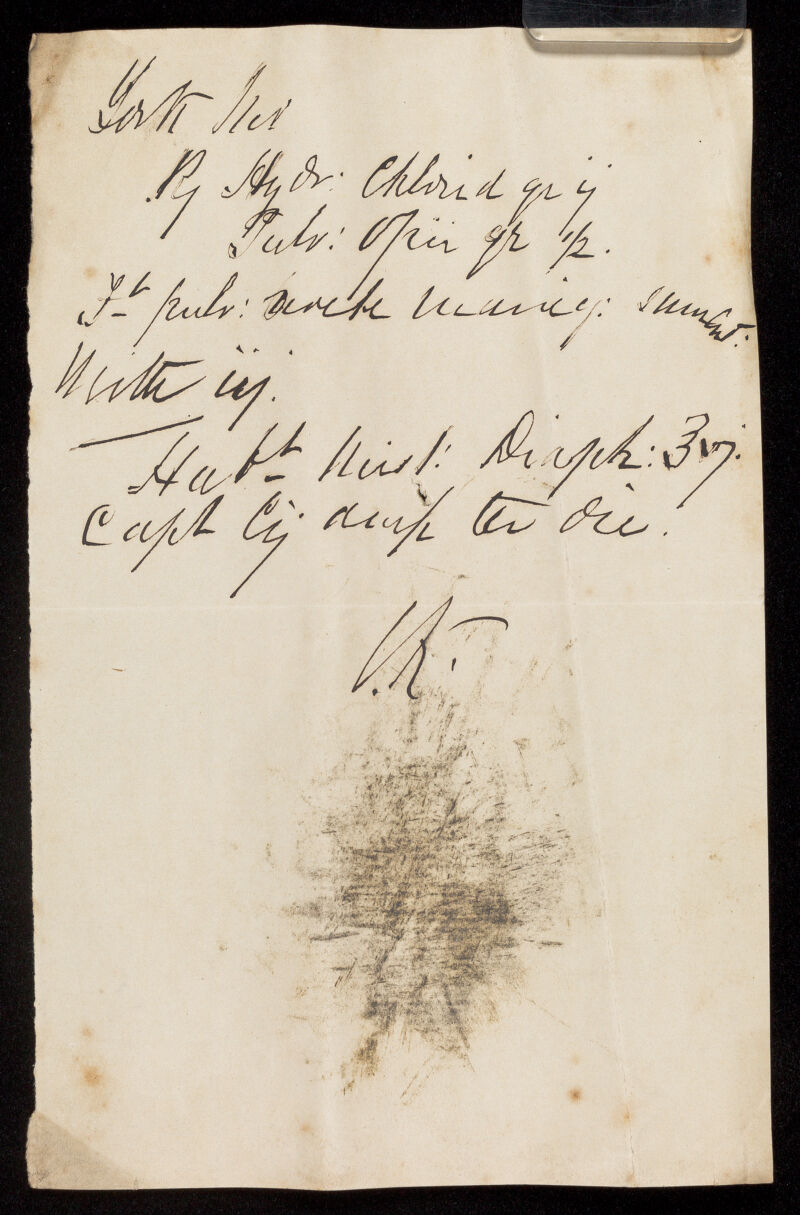 York
Rx Hydr: Chlorid gr ij
Pulv: Opii gr 1/2.
Ft pulv: nocte maneq: sumend:
Mitte iij.
Habt Mist: Diaph: ℥vj.
Capt Cij amp ter die.